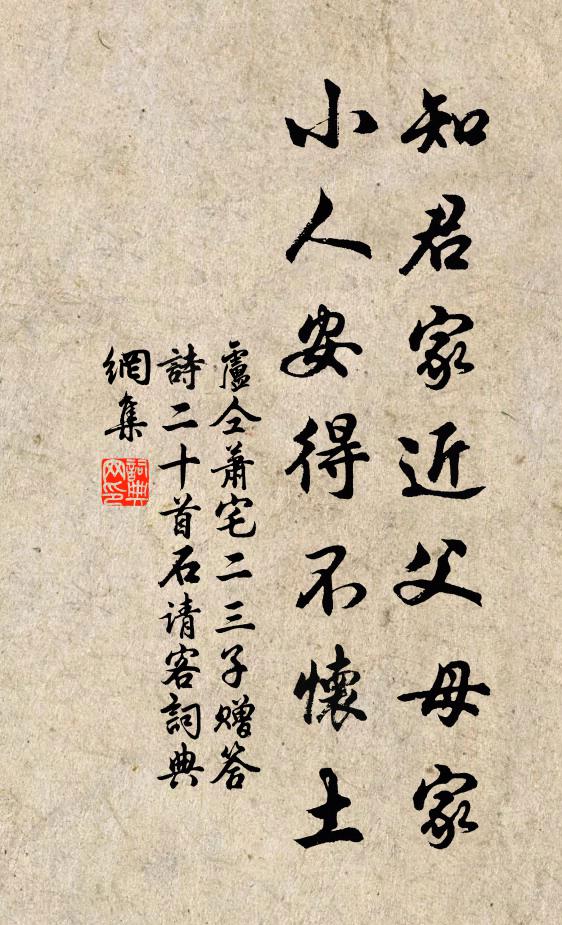 知君家近父母家
小人安得不懷土
盧仝蕭宅二三子贈答
詩二十首石请客詞典
網集
詞典网印